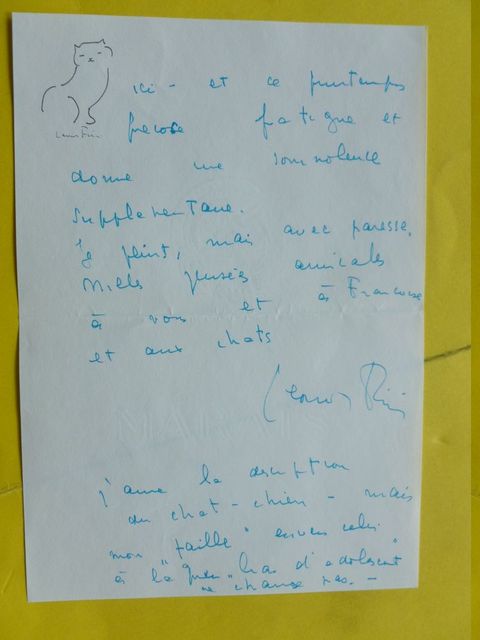 ici - et ce printemps
précoce fatigue et
donne une somnolence
supplémentaire.
Je peint, mais avec paresse.
Milles pensées amicales
à vous et à Francoise
et aux chats
Leonor Fini
j'aime la description
du chat-chien - mais
mon "faille" envers celui
à la "queue bas d'adolescent"
ne change pas. -